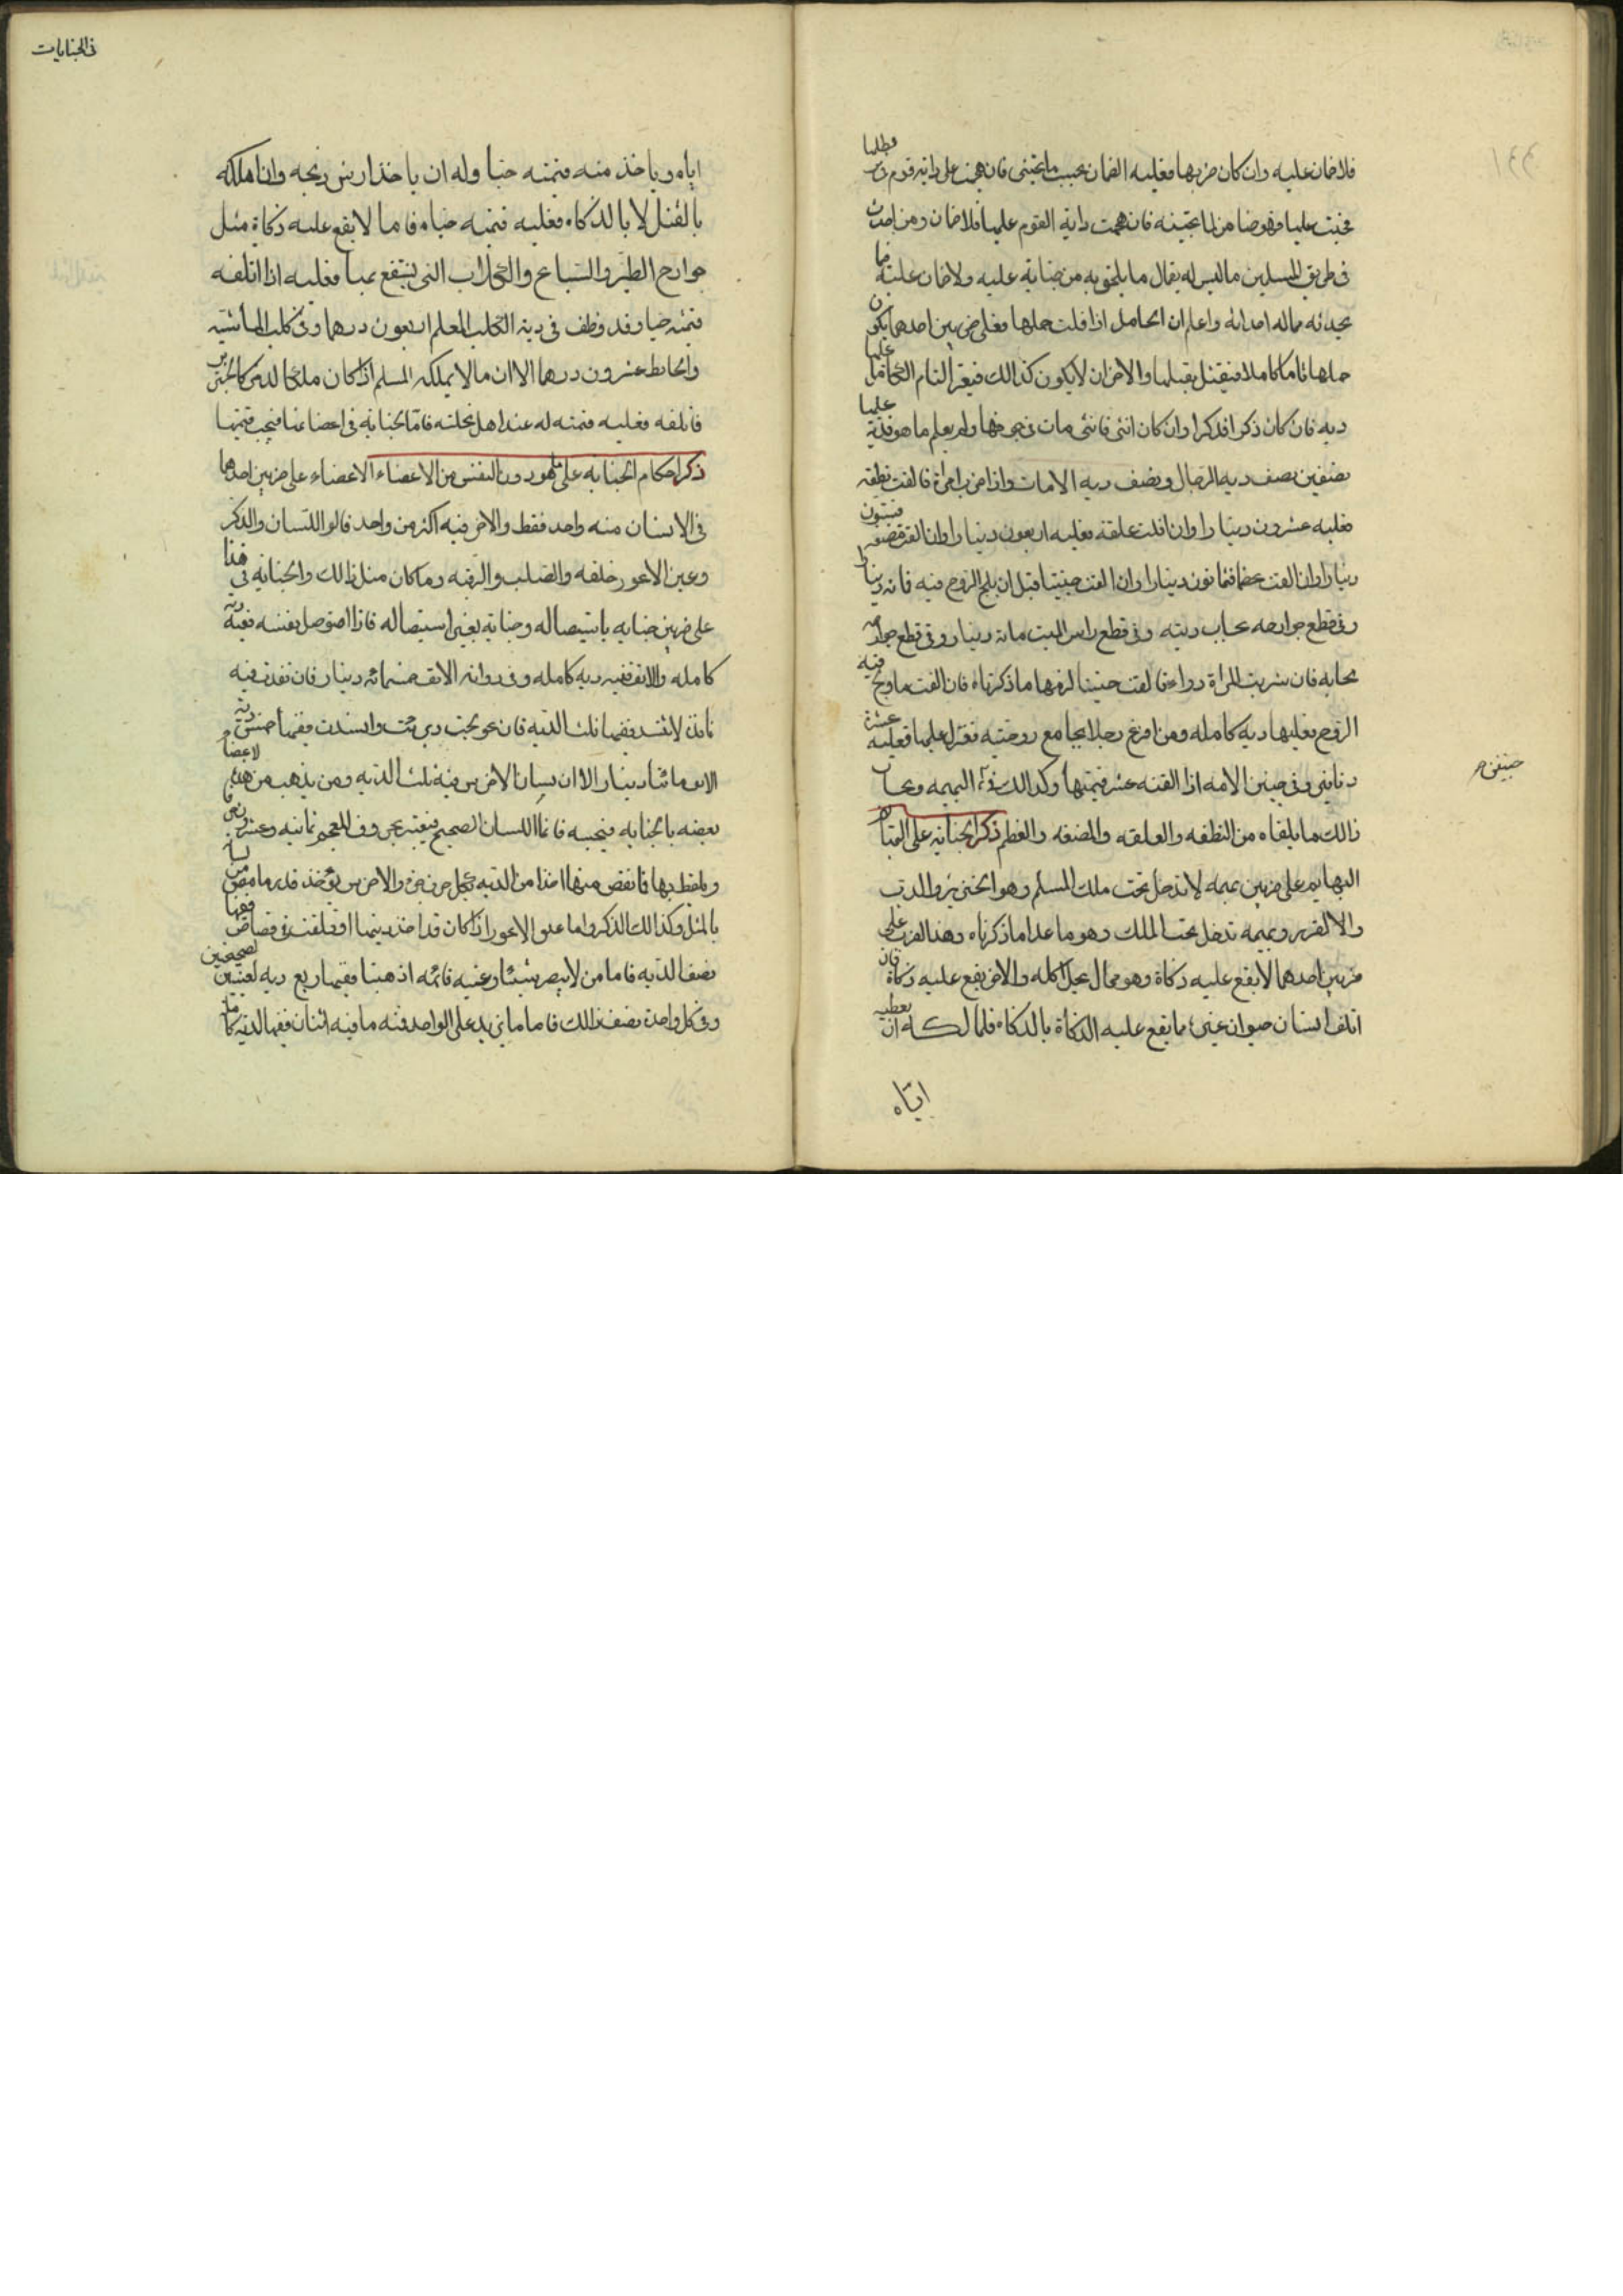 فلا ضمان عليه وان كان ضربها فعليه الضمان بحسب ما تجنى فان هجمت على دابة قوم
فجنت عليها فهو ضامن لما تجنيه فان هجمت دابة القوم عليها فلا ضمان ومن احدث
فى طريق المسلمين ما ليس له يقال ما يلحق به من جناية عليه ولا ضمان عليه فيما
يحدثه مما له احداثه واعلم ان الحامل اذا قتلت حملها فعلى ضربين احدهما يكون
حملها تاما كاملا فيقتل بقتلها والاخر ان لا يكون كذالك فيغر التام الكامل
ديه فان كان ذكرا فذكرا وان كان انثى فانثى مات فى جوفها ولم يعلم ما هو فدية
بنصفين نصف دية الرجال ونصف دية الاناث واذا ضرب امرأة فالقت نطفه
فعليه عشرون دينارا وان القت علقه فعليه اربعون دينارا وان القت مضغه فستون
دينارا وان القت عظما فثمانون دينارا وان القت جنينا قبل ان يلج الروح فيه فمائه دينار
وفى قطع جوارحه بحساب ديته وفى قطع راس الميت مائة دينار وفى قطع جوارحه
بحسابه فان شربت المراة دواء فالقت جنينا لزمها ما ذكرناه فان القت ما ولج فيه
الروح فعليها ديه كامله ومن افزع رجلا يجامع زوجتيه فعزل عليها فعليه عشرة
دنانير وفى جنين الامه اذا القته عشر قيمتها وكذالك فى البهيمه وبحساب
ذالك ما يلقاه من النطفه والعلقه والمضغه والعظم ذكر الجناية على البهائم
البهايم على ضربين بهيمه لا تدخل تحت ملك المسلم وهو الخنزير والدب
والا القرد وبهيمه تدخل تحت الملك وهو ما عدا ما ذكرناه وهذا الضرب على
ضربين احدهما لا يقع عليه ذكاة وهو مما لا يحل اكله والاخر يقع عليه ذكاة فان
اتلف انسان حيوان غيره مما يقع عليه الذكاة بالذكاه فلمالكه ان يعطيه
اياه
جنين حر
فى الجنايات
اياه وياخذ منه قيمته حيا وله ان ياخذ ارش ذبحه وان اهلكه
بالقتل لا بالذكاه فعليه قيمته حياه فاما ما لا يقع عليه ذكاة مثل
جوارح الطير والسباع والكلاب التى ينتفع بها فعليه اذا اتلفه
قيمته حيا وقد وظف فى دية الكلب المعلم اربعون درهما وفى كلب الماشيه
والحائط عشرون درهما الا ان ما لا يملكه المسلم اذا كان ملكا لذمى كالخنزير
فاتلفه فعليه قيمته له عند اهل نحلته فاما الجناية فى اعضائها فيجب قيمتها
ذكر احكام الجنايه على ما هو دون النفس من الاعضاء الاعضاء على ضربين احدهما
فى الانسان منه واحد فقط والاخر فيه اكثر من واحد فالاول اللسان والذكر
وعين الاعور خلقه والصلب والرقبه وما كان مثل ذالك والجنايه فى هذا
على ضربين جنايه باستيصاله وجناية بغير استيصاله فاذا استوصل بنفسه ففيه دية
كامله والانف ففيه ديه كامله وفى روثة الانف خمسمائه دينار فان نفذت فيه
نافذة لا تنسد ففيها ثلث الديه فان عولجت وانسدت ففيها خمس دية
الانف مائتا دينار الا ان لسان الاخرس فيه ثلث الديه ومن يذهب من هذه الاعضاء
بعضه بالجنايه فبحسبه فاما اللسان الصحيح فيعتبر بحروف المعجم ثمانيه وعشرون
ويلفظ بها فما نقص منها اخذ من الديه بكل حرف جزء والاخرس يوخذ قدر ما نقص من لسانه
بالمثل وكذالك الذكر واما عين الاعور اذا كان قد اخذ ديتها او تلفت فى قصاص ففيها
نصف الديه فاما من لا يبصر شيئا وعينيه قائمه اذهبتا ففيها ربع ديه لعينين صحيحتين
وفى كل واحدة نصف ذالك فاما ما يزيد على الواحد فمنه ما فيه اثنان ففيهما الديه كاملة